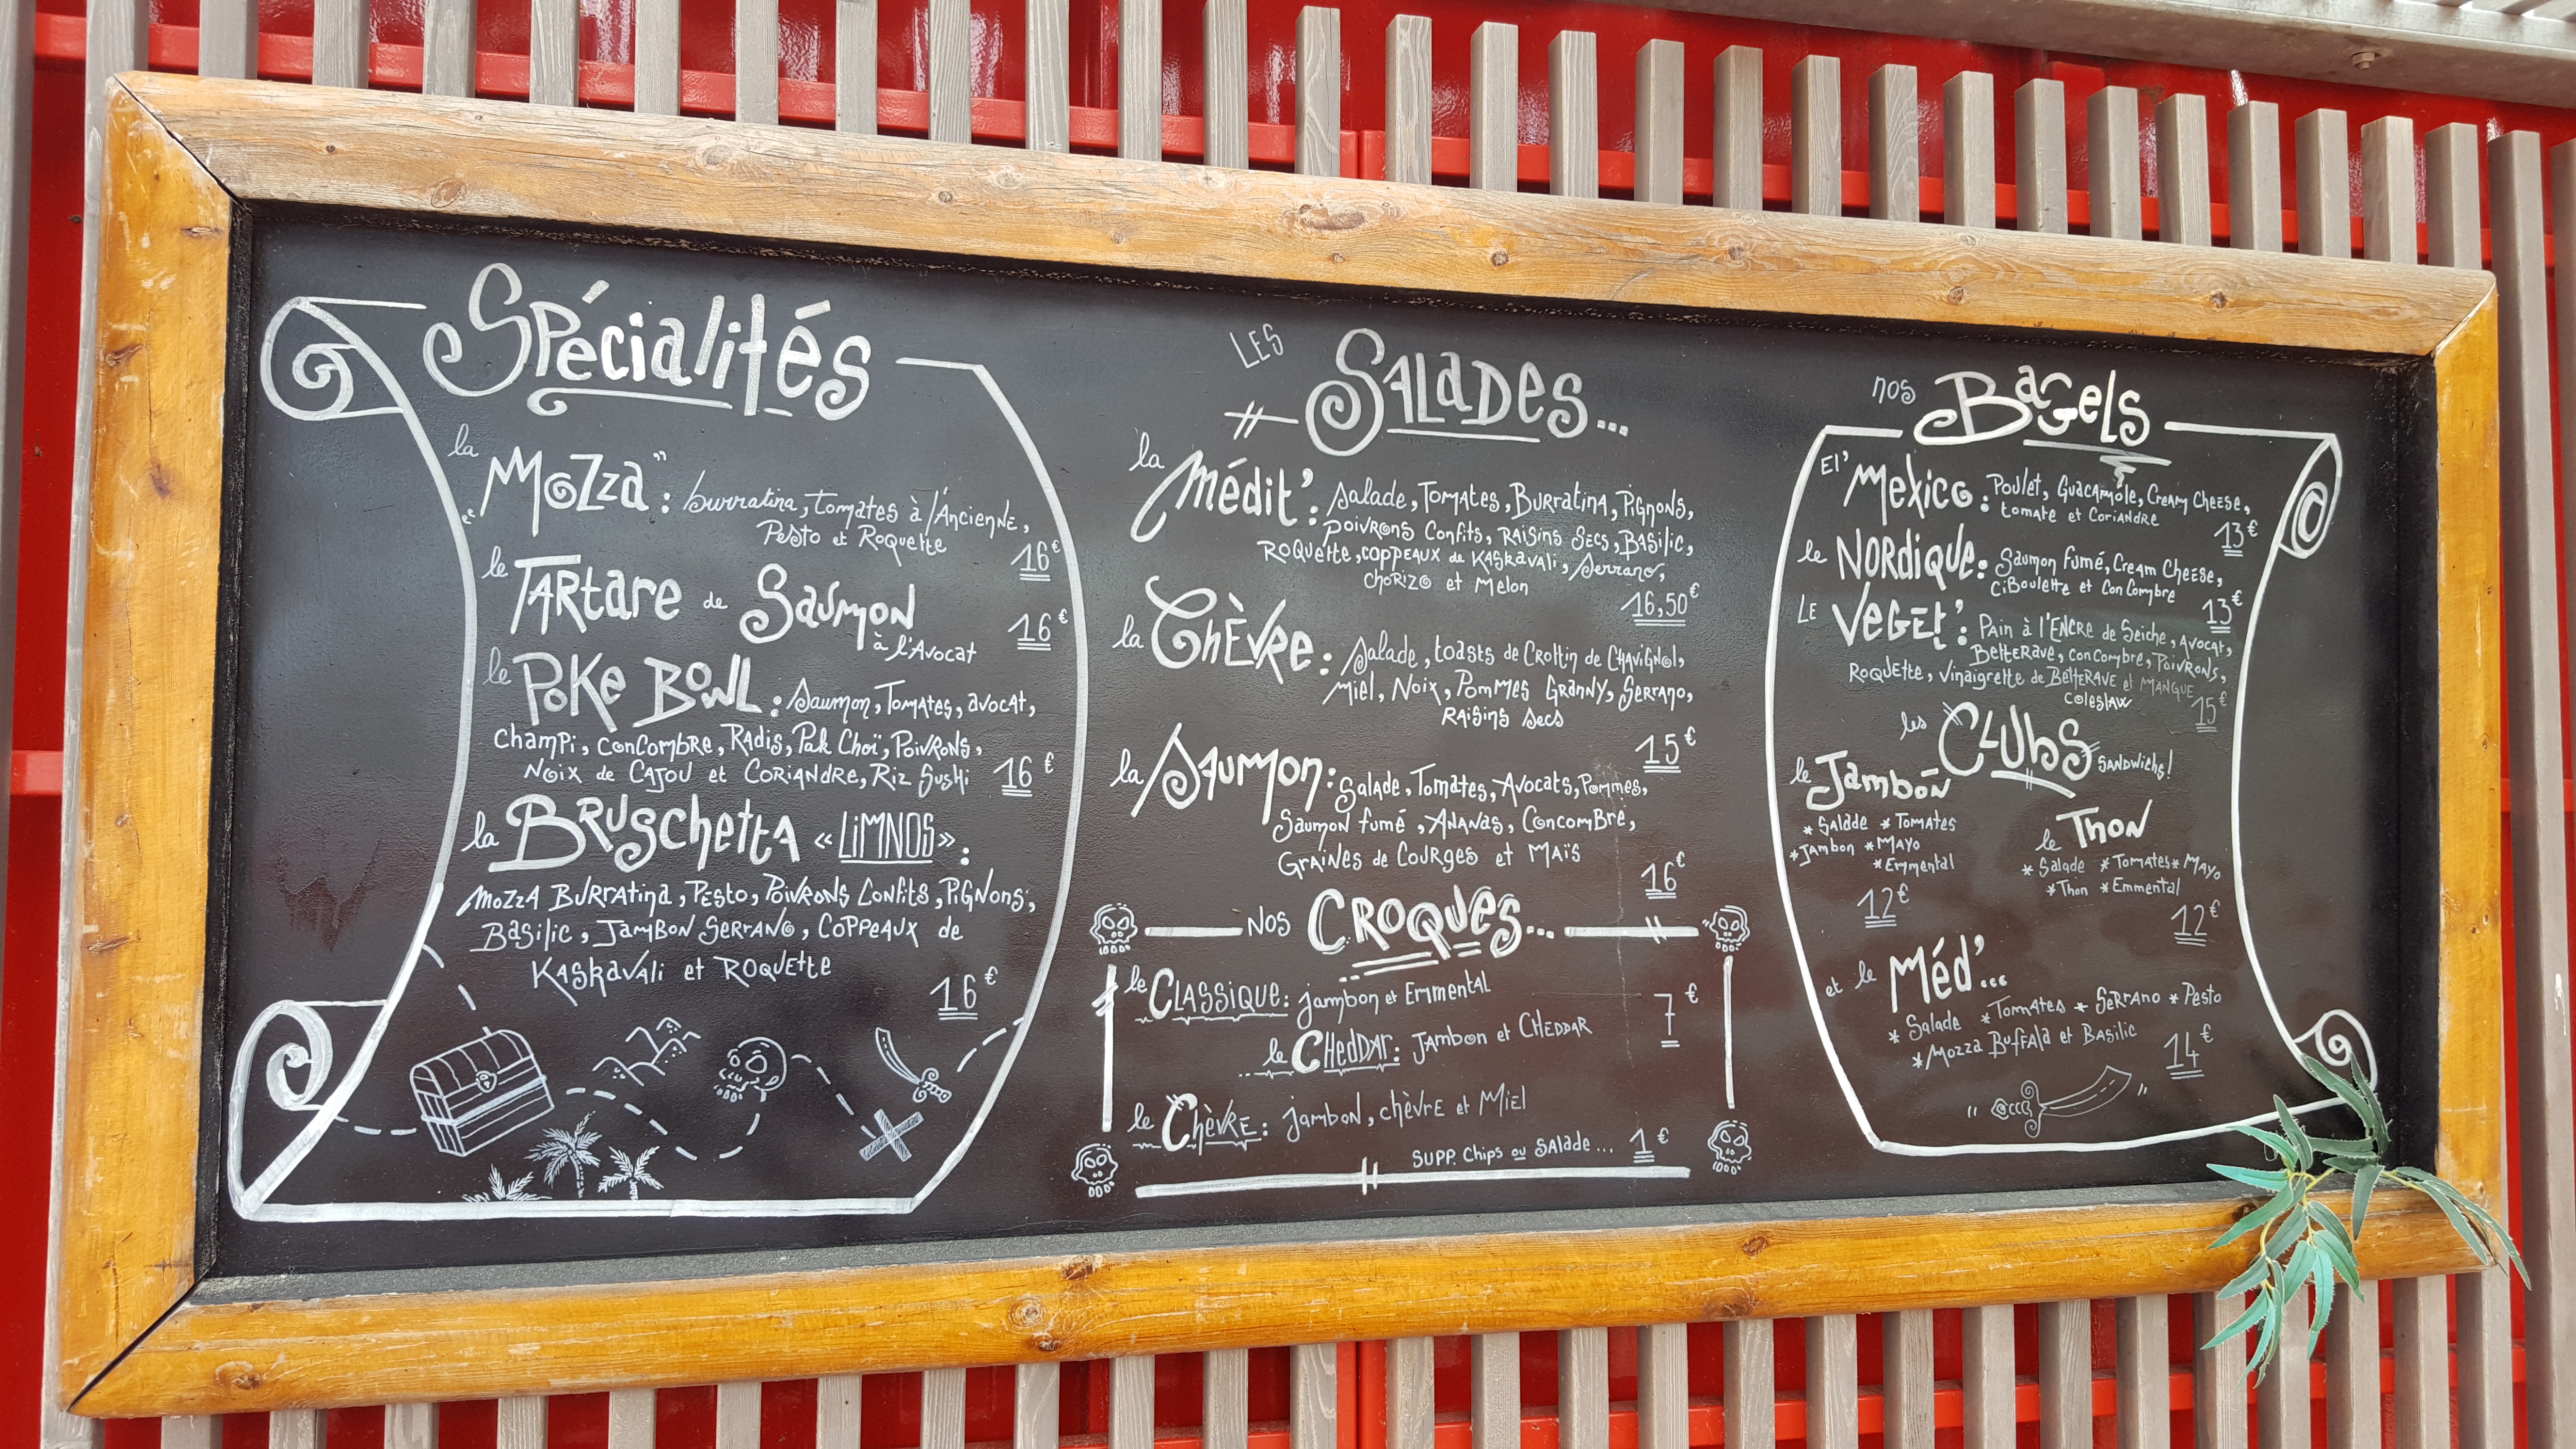 Spécialités
la "Mozza" : burratina, tomates à l'Ancienne,
Pesto et Roquette
16€
le Tartare de Saumon
à l'Avocat
16€
le Poke Bowl : Saumon, Tomates, avocat,
champi, concombre, Radis, Pak Choï, Poivrons,
Noix de Cajou et Coriandre, Riz Sushi 16€
la Bruschetta « LIMNOS » :
Mozza Burratina, Pesto, Poivrons Confits, Pignons,
Basilic, Jambon Serrano, Coppeaux de
Kaskavali et Roquette
16€
LES
SALADES...
la Médit' : Salade, Tomates, Burratina, Pignons,
Poivrons Confits, Raisins Secs, Basilic,
Roquette, coppeaux de Kaskavali, Serrano,
Chorizo et Melon
16,50€
la Chèvre : Salade, toasts de Crottin de Chavignol,
Miel, Noix, Pommes Granny, Serrano,
Raisins Secs
15€
la Saumon : Salade, Tomates, Avocats, Pommes,
Saumon fumé, Ananas, Concombre,
Graines de Courges et Maïs
16€
NOS CROQUES...
le Classique : jambon et Emmental
7€
le Cheddar : Jambon et Cheddar
le Chèvre : jambon, chèvre et Miel
SUPP. Chips ou Salade... 1€
nos Bagels
El' Mexico : Poulet, Guacamole, Cream Cheese,
tomate et Coriandre
13€
le Nordique : Saumon fumé, Cream Cheese,
Ciboulette et Concombre
13€
Le Veget' : Pain à l'Encre de Seiche, Avocat,
Betterave, concombre, Poivrons,
Roquette, vinaigrette de Betterave et Mangue
Coleslaw
15€
les Clubs Sandwichs!
le Jambon
* Salade * Tomates
* Jambon * Mayo
* Emmental
12€
le Thon
* Salade * Tomates * Mayo
* Thon * Emmental
12€
et le Méd'...
* Salade * Tomates * Serrano * Pesto
* Mozza Buffala et Basilic
14€